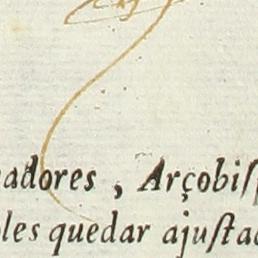 adores, Arçobiſ
les quedar ajuſta